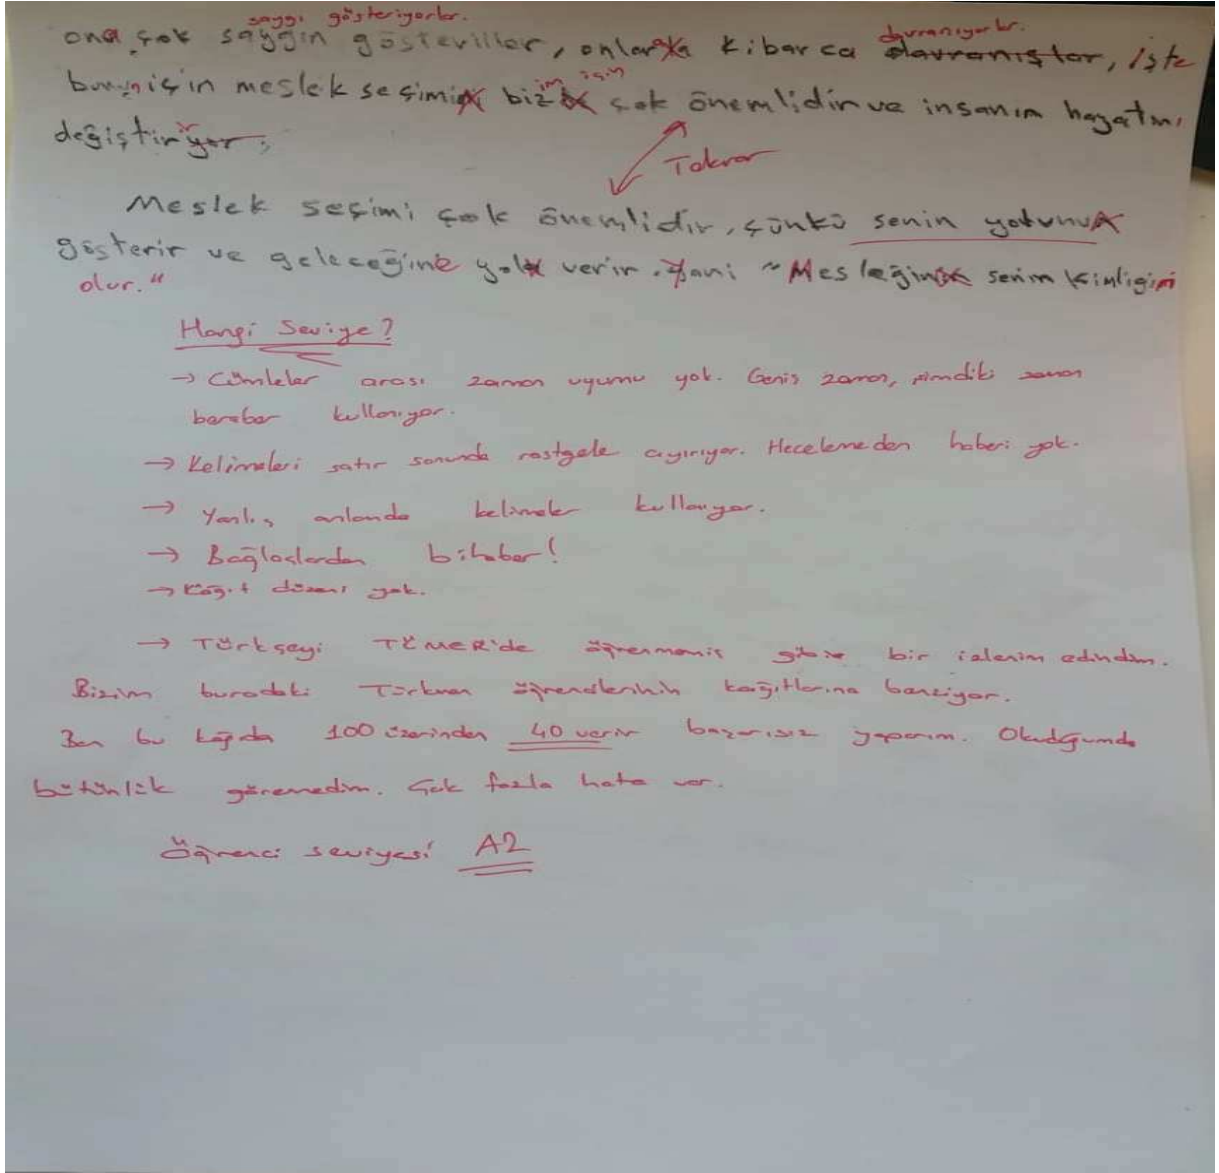 saygı gösteriyorlar.
ona çok saygın gösterirler, onlara kibarca davranıştar, işte
davranıyorlar.
bunun için meslek seçimi biz çok önemlidir ve insanın hayatını
im için
değiştiriyor.
Tekrar
Meslek seçimi çok önemlidir, çünkü senin yolunu
gösterir ve geleceğine yol verir. Yani "Mesleğin senin kimliğin
olur."
Hangi Seviye?
→ Cümleler arası zaman uyumu yok. Geniş zaman, şimdiki zaman
beraber kullanıyor.
→ Kelimeleri satır sonunda rastgele ayırıyor. Hecelemeden haberi yok.
→ Yanlış anlamda kelimeler kullanıyor.
→ Bağlaçlardan bihaber!
→ Kağıt düzeni yok.
→ Türkçeyi TÖMER'de öğrenmemiş gibi bir izlenim edindim.
Bizim buradaki Türkmen öğrencilerinin kağıtlarına benziyor.
Ben bu kağıda 100 üzerinden 40 verir başarısız yaparım. Okuduğumda
bütünlük göremedim. Çok fazla hata var.
Öğrenci seviyesi A2